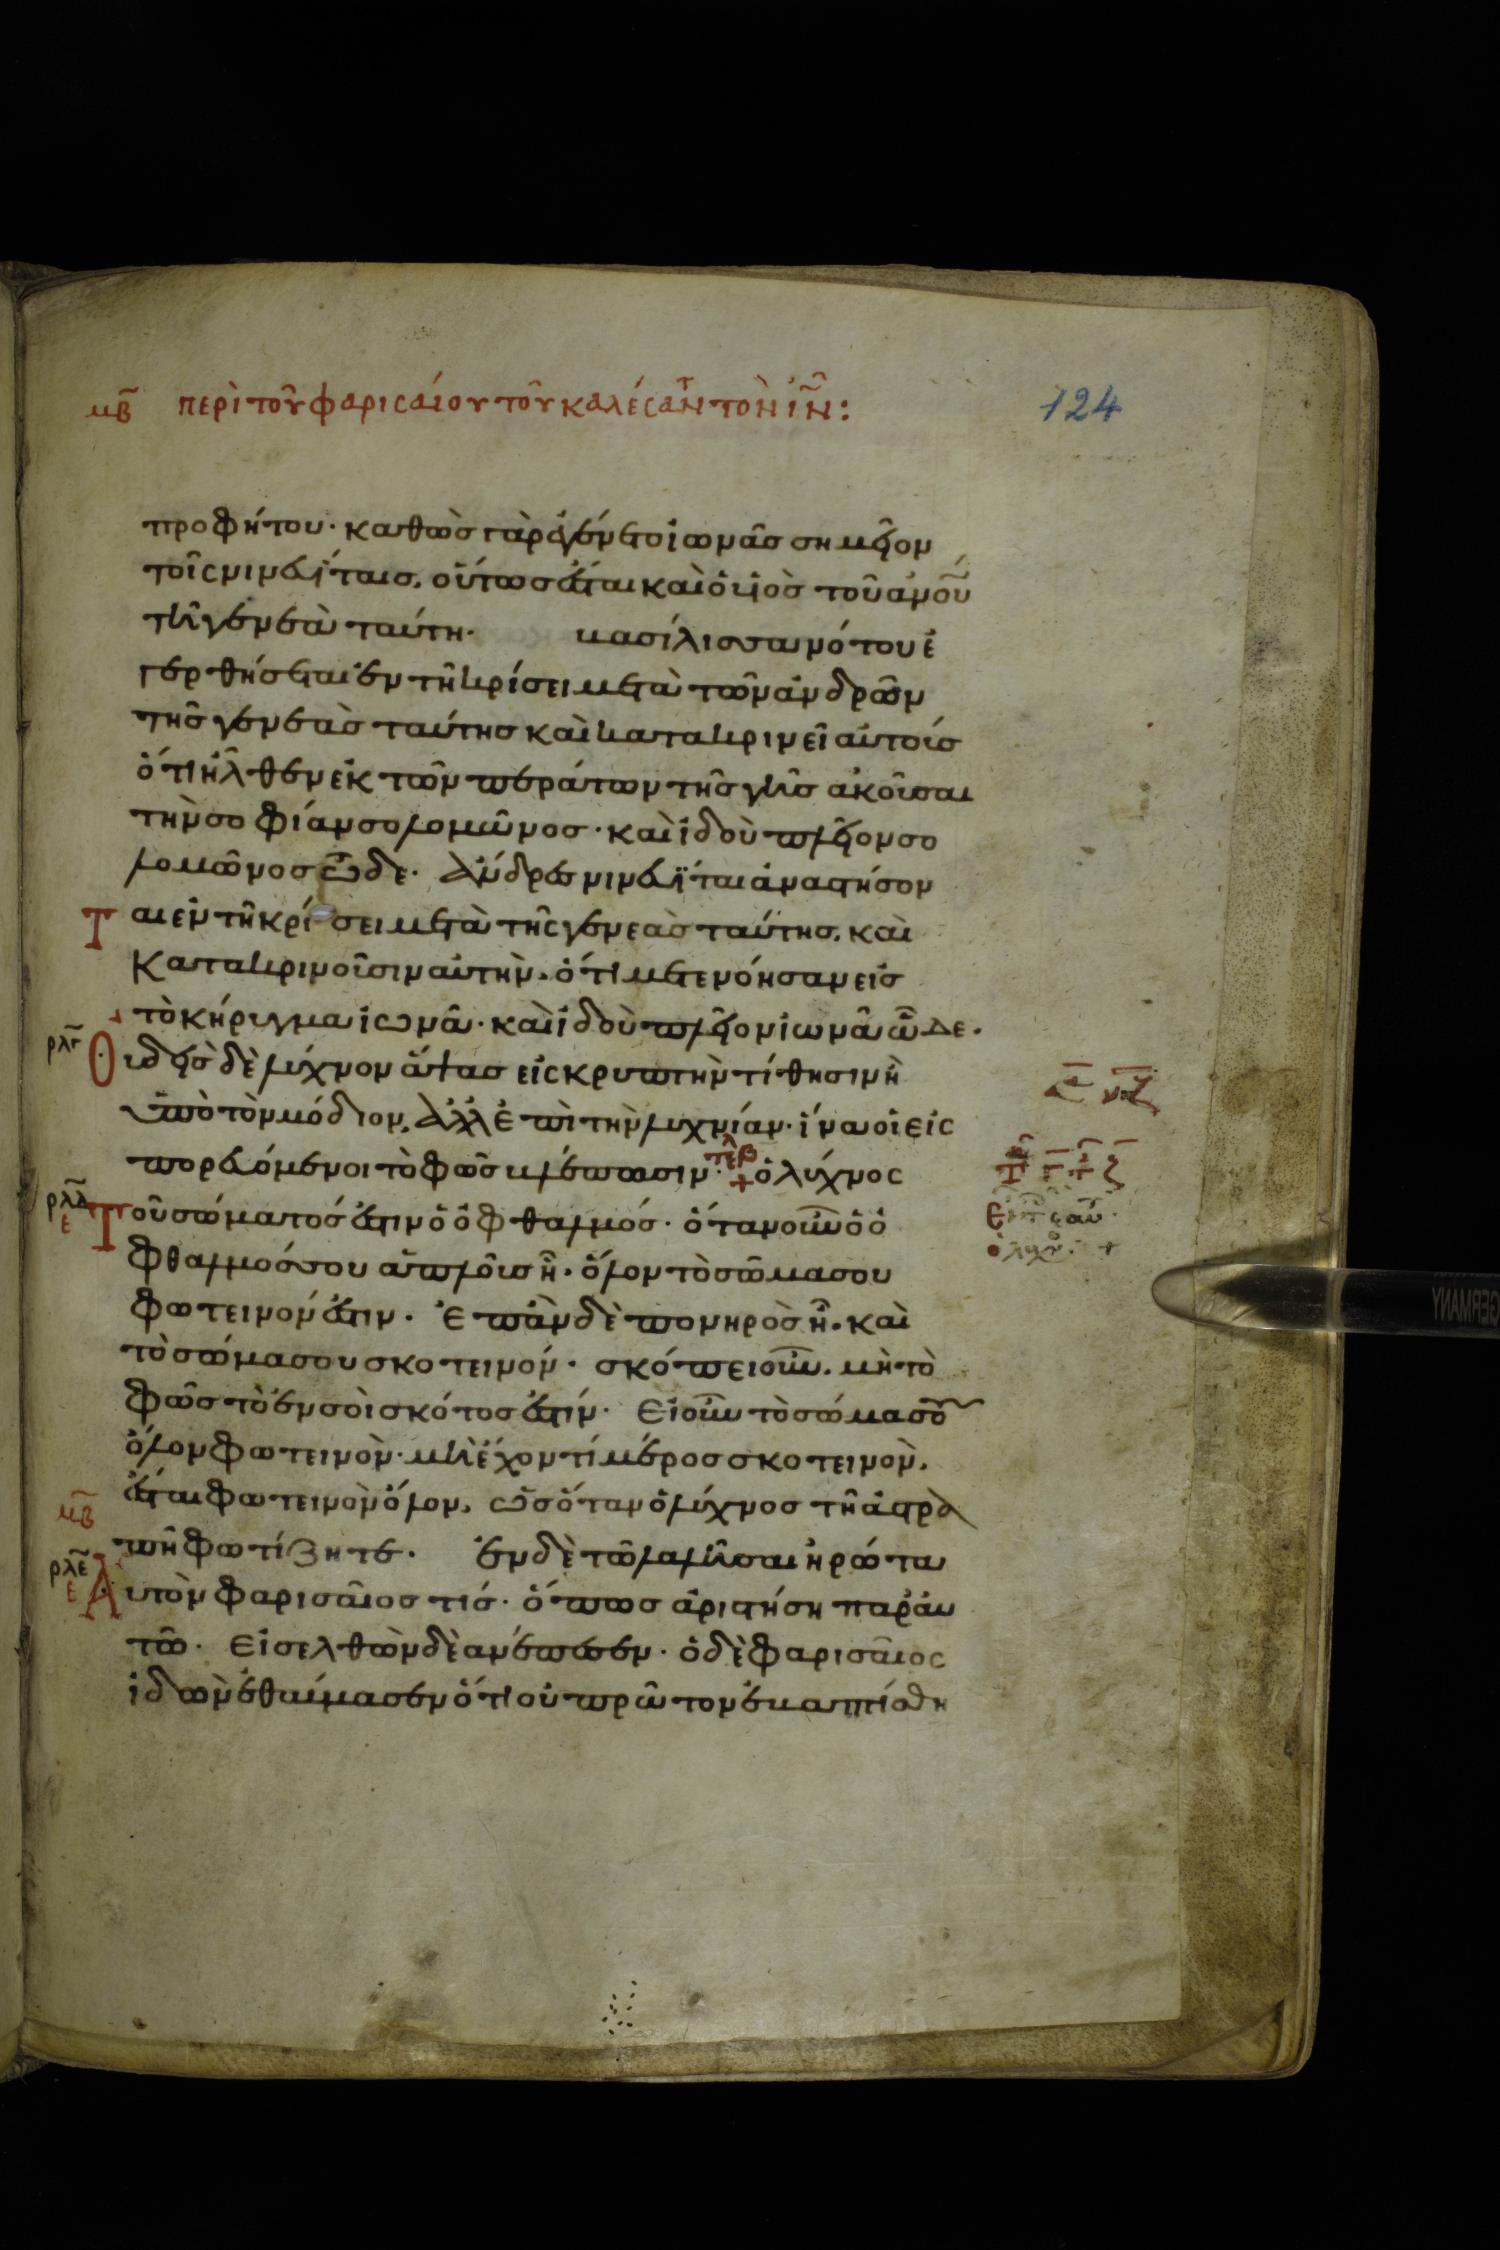 μβ περὶ τοῦ φαρισαίου τοῦ καλέσαντος τὸν ἰν̄:
124
προφήτου· καθὼς γὰρ ἐγένετο ἰωνᾶς σημεῖον
τοῖς νινευΐταις, οὕτως ἔσται καὶ ὁ υἱὸς τοῦ ἀνου
τῆ γενεὰ ταύτη· βασίλισσα νότου ἐ
γερθήσεται ἐν τῆ κρίσει μετὰ τῶν ἀνδρῶν
τῆς γενεὰς ταύτης καὶ κατακρινεῖ αὐτούς
ὅτι ἦλθεν ἐκ τῶν περάτων τῆς γῆς ἀκοῦσαι
τὴν σοφίαν σολομῶνος· καὶ ἰδοὺ πλεῖον σο
λομῶνος ὧδε· ἄνδρες νινευΐται ἀναστήσον
Τ αι ἐν τῆ κρίσει μετὰ τῆς γενεὰς ταύτης, καὶ
κατακρινοῦσιν αὐτὴν, ὅτι μετενόησαν εἰς
τὸ κήρυγμα ἰωνᾶ· καὶ ἰδοὺ πλεῖον ἰωνᾶ ὧδε·
ρλγ Ουδεὶς δὲ λύχνον ἅψας εἰς κρυπτὴν τίθησιν ἢ
ὑπὸ τὸν μόδιον, ἀλλ' ἐπὶ τὴν λυχνίαν· ἵνα οἱ εἰς
πορευόμενοι τὸ φῶς βλέπωσιν· + ὁ λύχνος
ρλδ ε Τοῦ σώματός ἐστιν ὁ ὀφθαλμός· ὅταν οὖν ὁ ὀ
φθαλμός σου ἁπλοῦς ἦ· ὅλον τὸ σῶμα σου
φωτεινόν ἐστιν· ἐπὰν δὲ πονηρὸς ἦ· καὶ
τὸ σώμα σου σκοτεινόν· σκόπει οὖν. μὴ τὸ
φῶς τὸ ἐν σοὶ σκότος ἐστίν· εἰ οὖν τὸ σώμα σου
ὅλον φωτεινὸν· μὴ ἔχον τί μέρος σκοτεινὸν,
ἔσται φωτεινὸν ὅλον, ὡς ὅταν ὁ λύχνος τῆ ἀστρα
μβ πῆ φωτίζη σε· ἐν δὲ τῶ λαλῆσαι ἠρώτα
ρλε ε Αυτὸν φαρισαῖος τίς· ὅπως ἀριστήση παρ' αυ
τῶ· εἰσελθὼν δὲ ἀνέπεσεν· ὁ δὲ φαρισαῖος
ἰδὼν ἐθαύμασεν ὅτι οὐ πρῶτον ἐβαπτίσθη